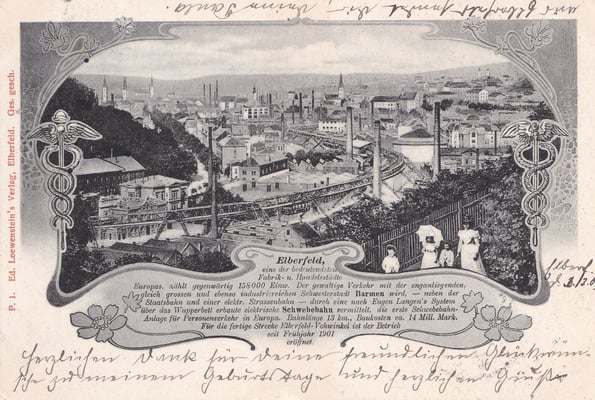 und Elberfeld
P. 1. Ed. Loewenstein's Verlag, Elberfeld. Ges. gesch.
Elberfeld,
eine der bedeutendsten
Fabrik- u. Handelsstädte
Europas, zählt gegenwärtig 158000 Einw. Der gewaltige Verkehr mit der enganliegenden,
gleich grossen und ebenso industriereichen Schwesterstadt Barmen wird — neben der
Staatsbahn und einer elektr. Strassenbahn — durch eine nach Eugen Langen's System
über das Wupperbett erbaute elektrische Schwebebahn vermittelt, die erste Schwebebahn-
Anlage für Personenverkehr in Europa. Bahnlänge 13 km., Baukosten ca. 14 Mill. Mark.
Für die fertige Strecke Elberfeld-Vohwinkel ist der Betrieb
seit Frühjahr 1901
eröffnet.
Herzlichen Dank für Deine freundlichen Glückwün-
sche zu meinem Geburtstage und herzlichen Gruß